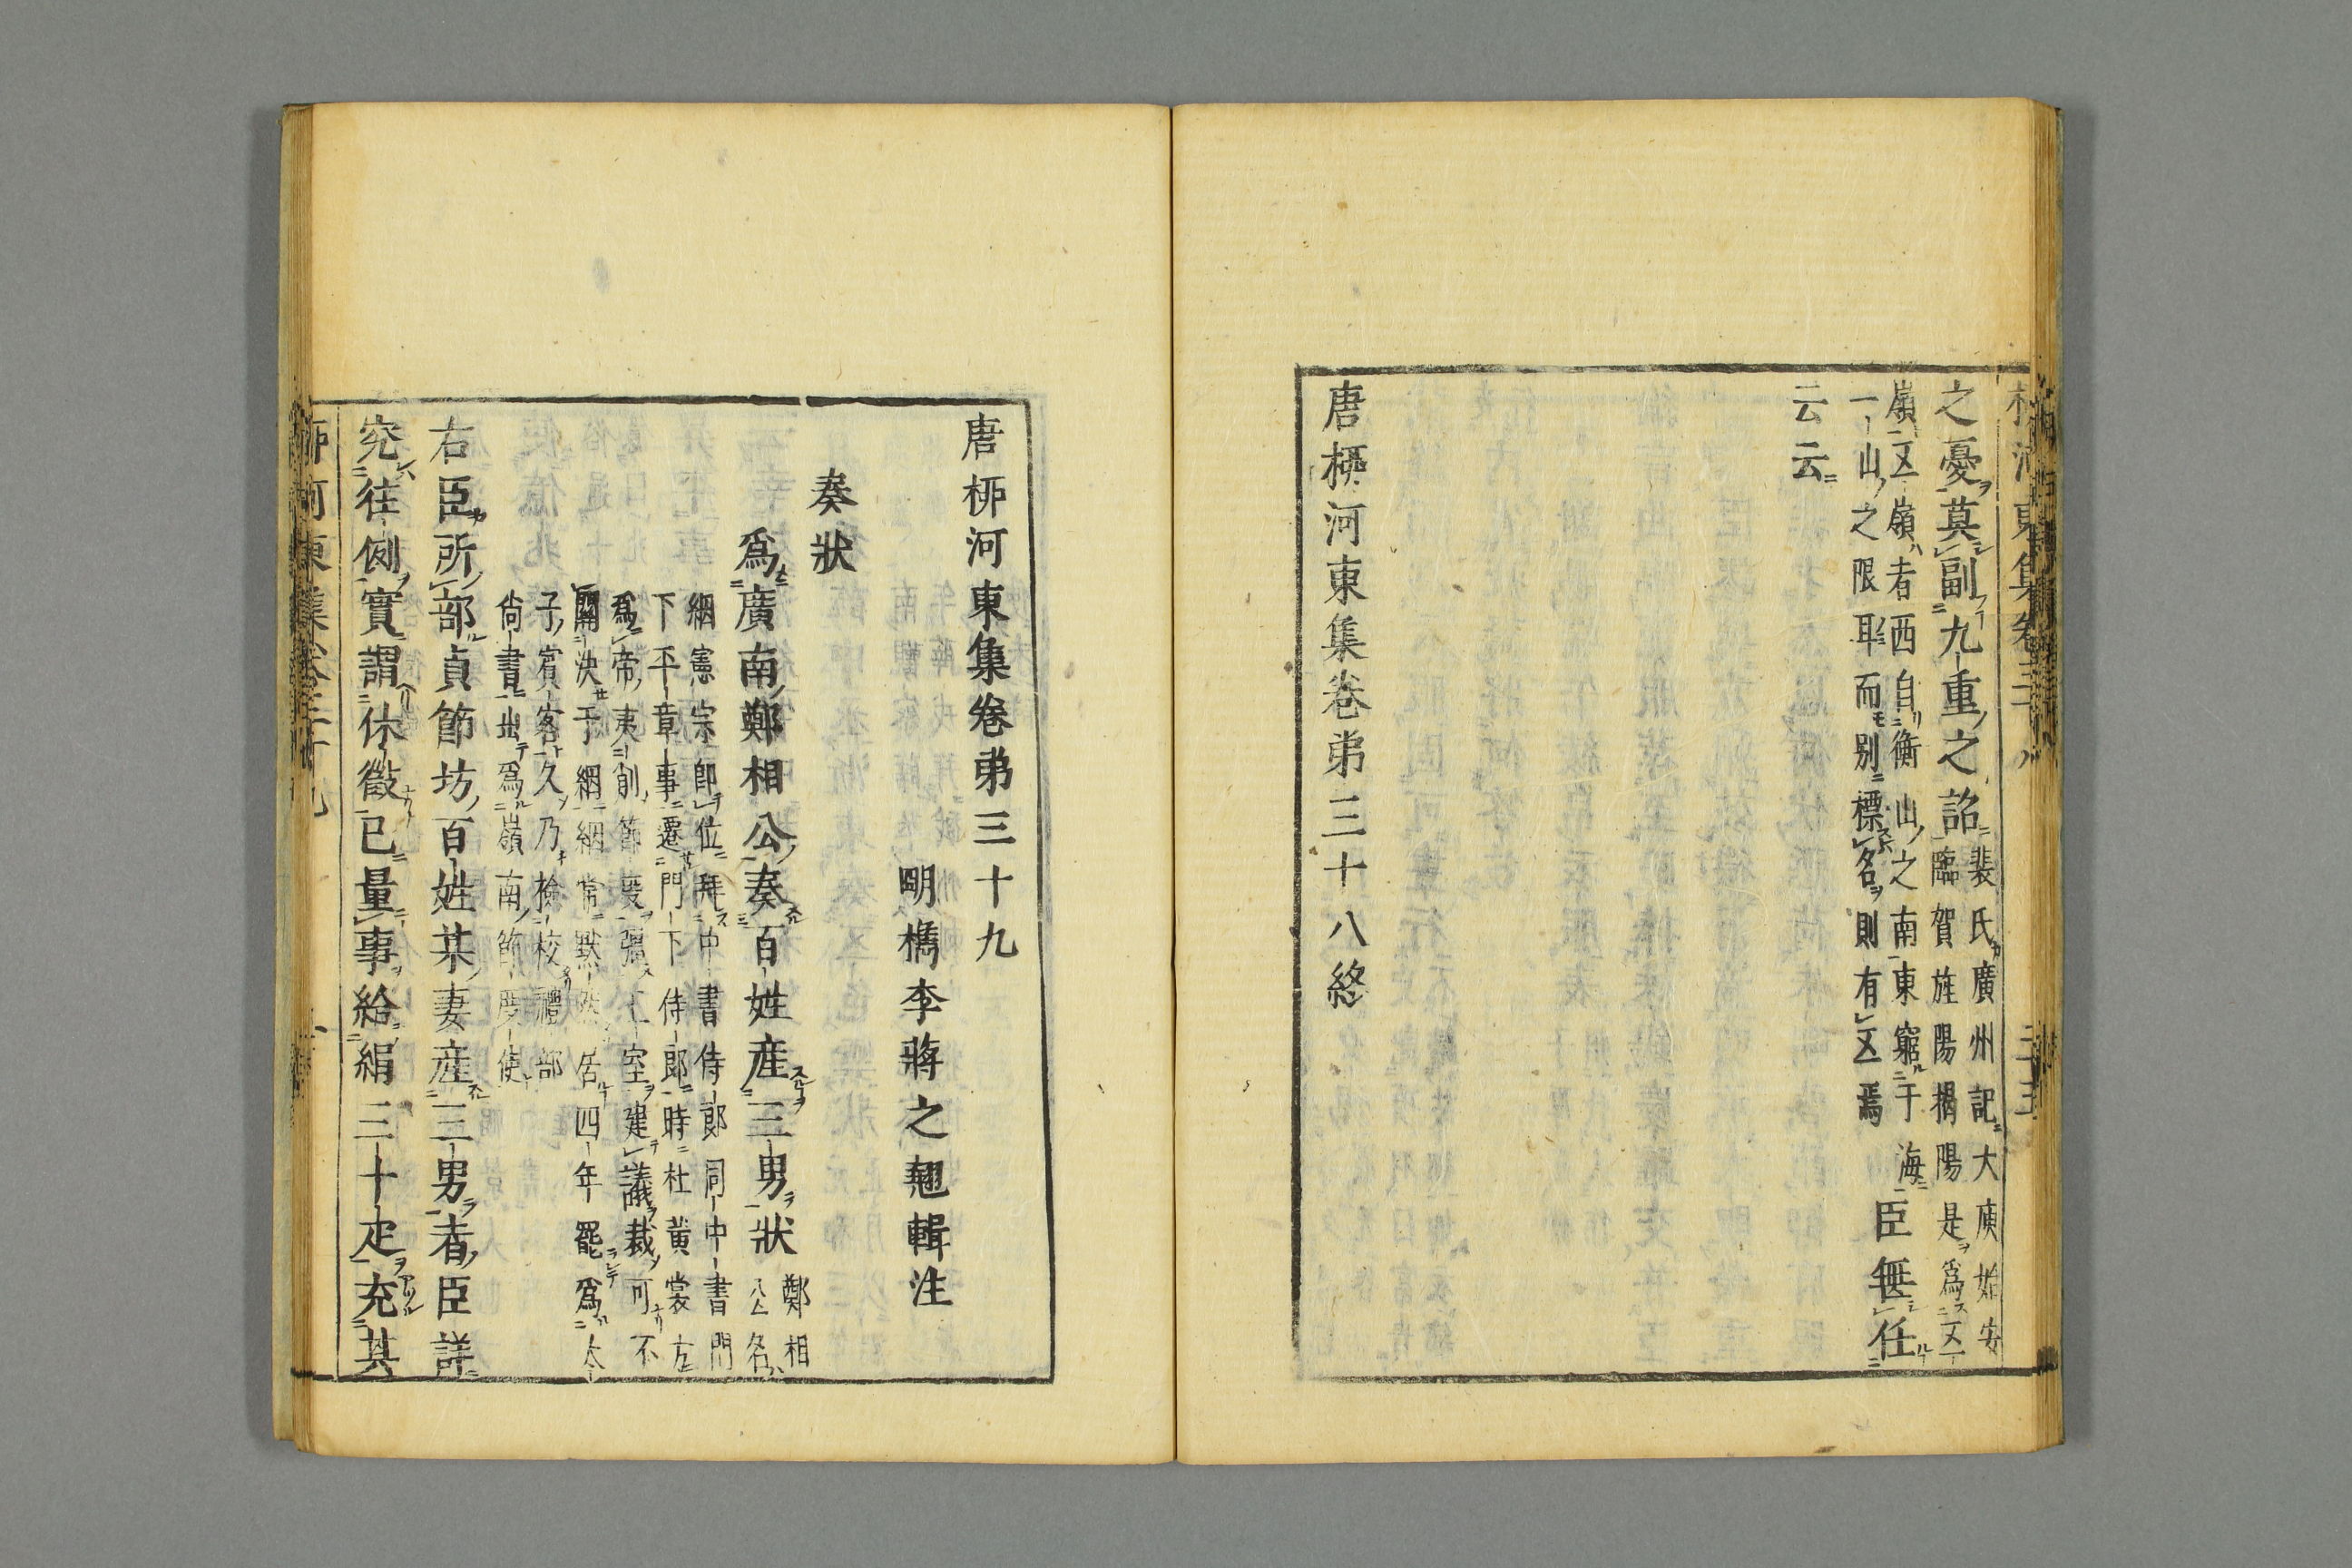 之憂莫副九重之詔裴氏廣州記大庾始安
臨賀旌陽揭陽是爲五
嶺五嶺者西自衡山之南東窮于海
一山之限耳而别標名則有五焉
臣無任
云云
唐栁河東集卷弟三十八終
唐栁河東集卷弟三十九
明檇李蔣之翹輯注
奏狀
爲廣南鄭相公奏百姓産三男狀鄭相
公名
絪憲宗卽位拜中書侍郞同中書門
下平章事遷門下侍郞時杜黃裳方
爲帝夷削節度彊王室建議裁可不
關決于絪絪常默然居四年罷爲太
子賓客久乃檢校禮部
尙書出爲嶺南節度使
右臣所部貞節坊百姓某妻産三男者臣詳
究往例實謂休徵已量事給絹三十疋充其